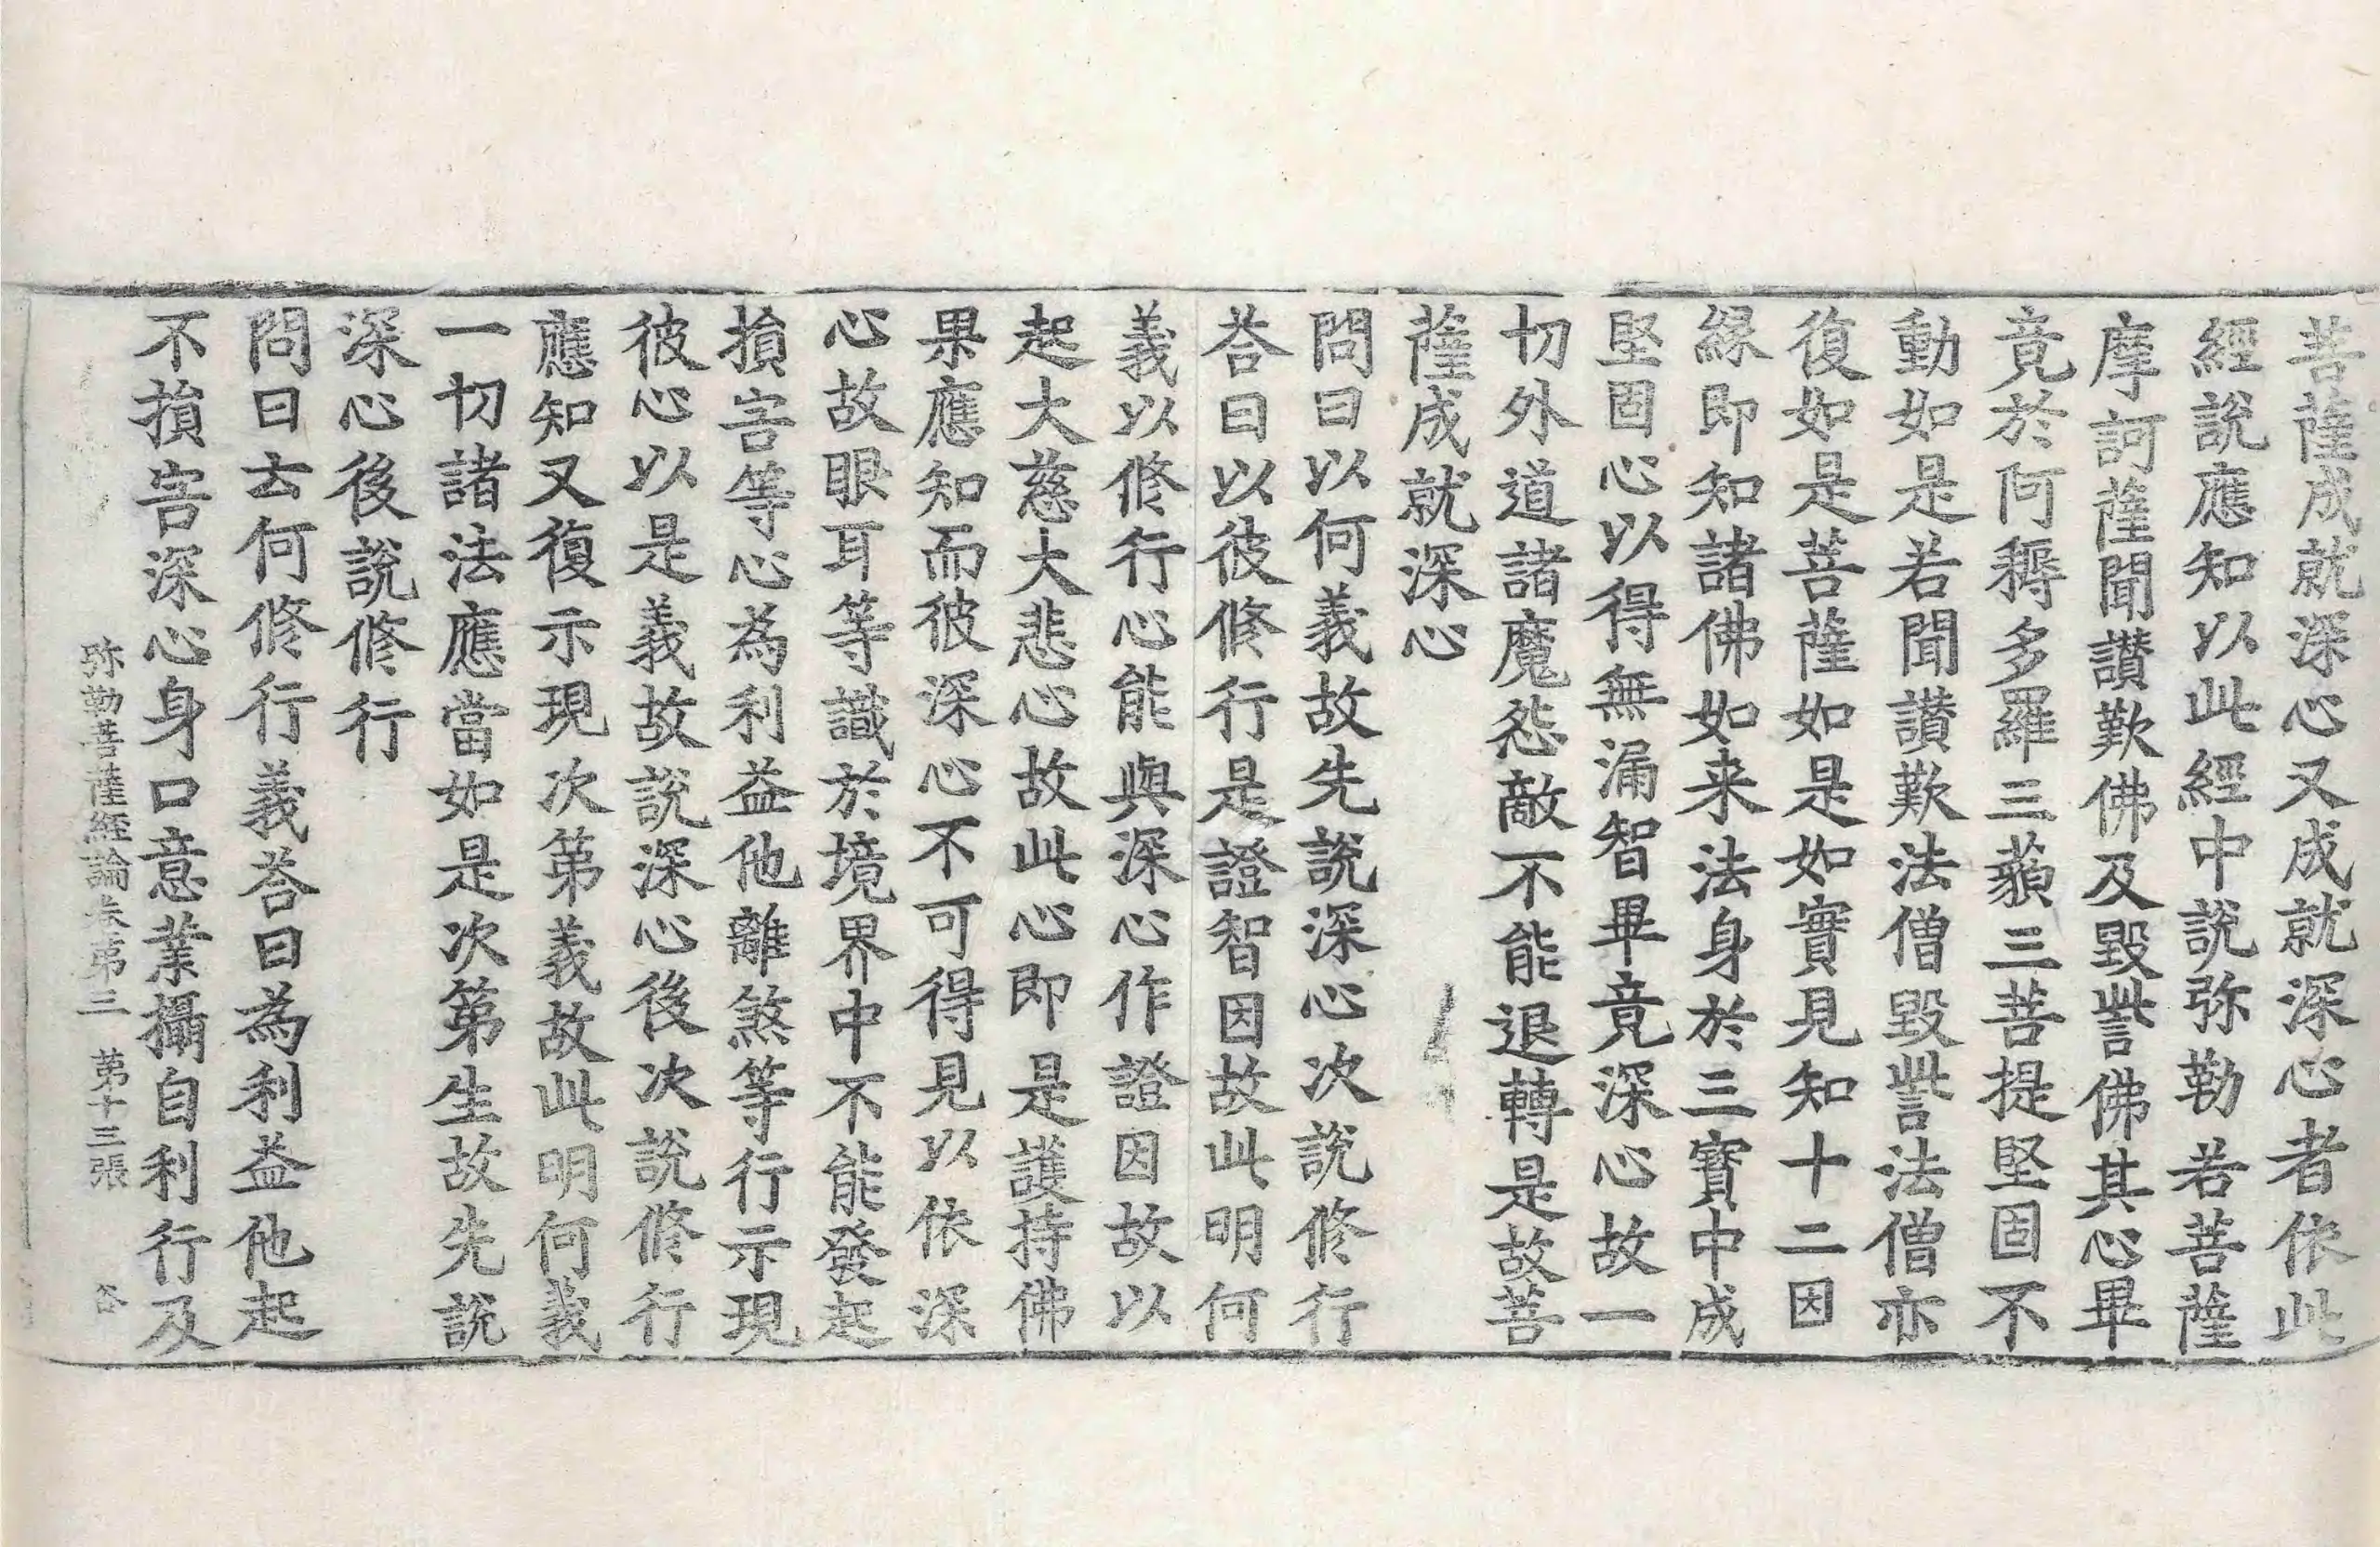 菩薩成就深心又成就深心者依此
經說應知以此經中說弥勒若菩薩
摩訶薩聞讃歎佛及毀訾佛其心畢
竟於阿耨多羅三藐三菩提堅固不
動如是若聞讃歎法僧毀訾法僧亦
復如是菩薩如是如實見知十二因
緣即知諸佛如来法身於三寶中成
堅固心以得無漏智畢竟深心故一
切外道諸魔怨敵不能退轉是故菩
薩成就深心
問曰以何義故先說深心次說修行
荅曰以彼修行是證智因故此明何
義以修行心能與深心作證因故以
起大慈大悲心故此心即是護持佛
果應知而彼深心不可得見以依深
心故眼耳等識於境界中不能發起
損害等心為利益他離煞等行示現
彼心以是義故說深心後次說修行
應知又復示現次第義故此明何義
一切諸法應當如是次第生故先說
深心後說修行
問曰云何修行義荅曰為利益他起
不損害深心身口意業攝自利行及
弥勒菩薩経論卷第三 第十三張